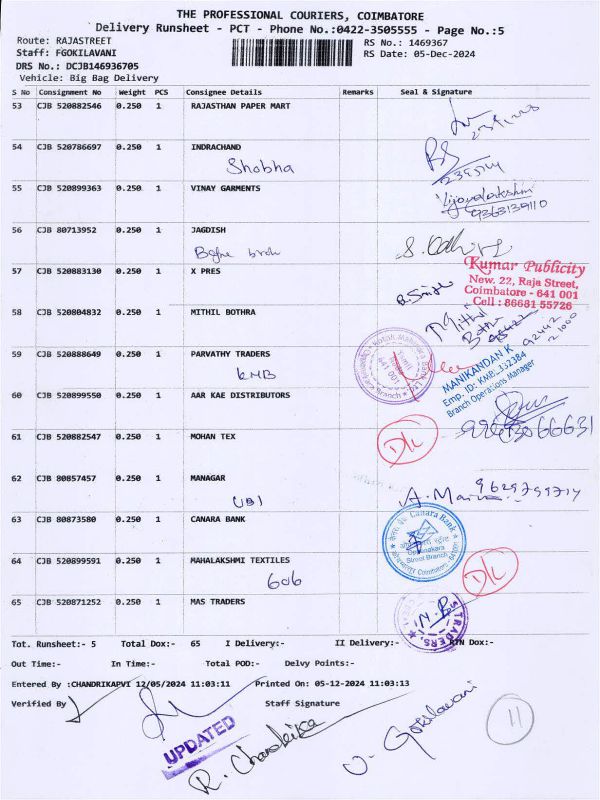 THE PROFESSIONAL COURIERS, COIMBATORE
Delivery Runsheet - PCT - Phone No.:0422-3505555 - Page No.:5
Route: RAJASTREET RS No.: 1469367
Staff: FGOKILAVANI RS Date: 05-Dec-2024
DRS No.: DCJB146936705
Vehicle: Big Bag Delivery
S No Consignment No Weight PCS Consignee Details Remarks Seal & Signature
53 CJB 520882546 0.250 1 RAJASTHAN PAPER MART
54 CJB 520786697 0.250 1 INDRACHAND
Shobha
55 CJB 520899363 0.250 1 VINAY GARMENTS
Vijayalakshmi
9363139110
56 CJB 80713952 0.250 1 JAGDISH
57 CJB 520883130 0.250 1 X PRES
Kumar Publicity
New. 22, Raja Street,
Coimbatore - 641 001
Cell : 86681 55726
58 CJB 520804832 0.250 1 MITHIL BOTHRA
Mithil
59 CJB 520888649 0.250 1 PARVATHY TRADERS
KMB
MANIKANDAN K
Emp. ID: KMB: 332384
Branch Operations Manager
60 CJB 520899550 0.250 1 AAR KAE DISTRIBUTORS
61 CJB 520882547 0.250 1 MOHAN TEX
D/L
62 CJB 80857457 0.250 1 MANAGAR
UBI
9629799714
63 CJB 80873580 0.250 1 CANARA BANK
Canara Bank
Street Branch
Coimbatore - 641001
64 CJB 520899591 0.250 1 MAHALAKSHMI TEXTILES
606
D/L
65 CJB 520871252 0.250 1 MAS TRADERS
TRADERS
Tot. Runsheet:- 5 Total Dox:- 65 I Delivery:- II Delivery:- RTN Dox:-
Out Time:- In Time:- Total POD:- Delvy Points:-
Entered By :CHANDRIKAPVI 12/05/2024 11:03:11 Printed On: 05-12-2024 11:03:13
Verified By Staff Signature
UPDATED
R. Chandrika
Gokilavani
11